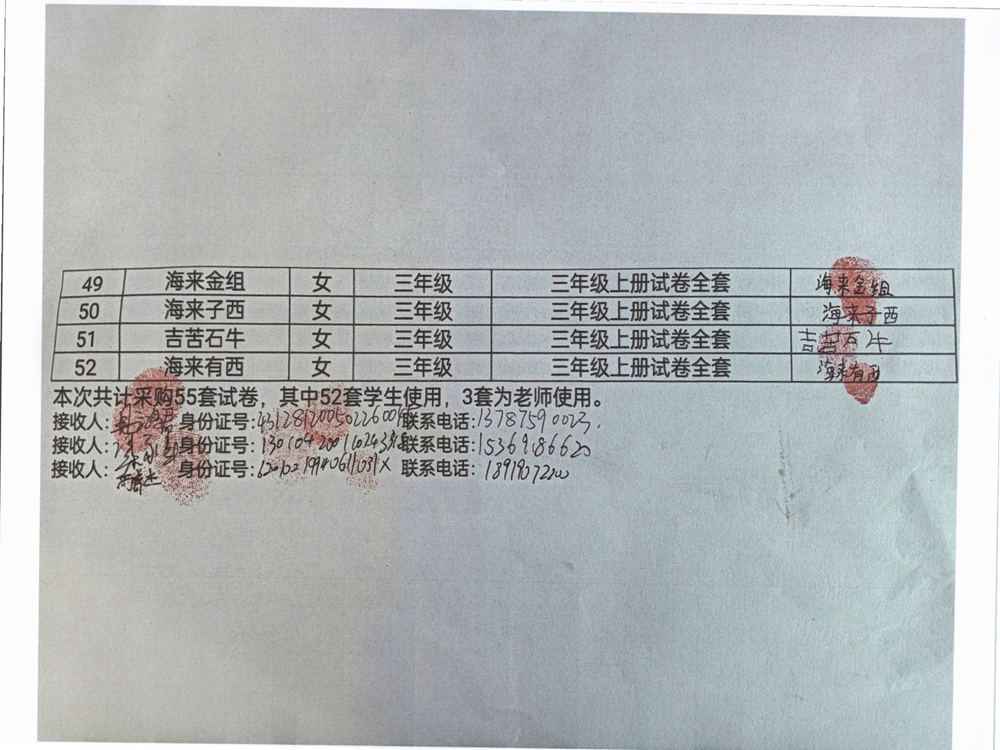 49 海来金组 女 三年级 三年级上册试卷全套 海来金组
50 海来子西 女 三年级 三年级上册试卷全套 海来子西
51 吉苦石牛 女 三年级 三年级上册试卷全套 吉苦石牛
52 海来有西 女 三年级 三年级上册试卷全套 海来有西
本次共计采购55套试卷，其中52套学生使用，3套为老师使用。
接收人: 身份证号: 联系电话:13787590023.
接收人: 身份证号: 联系电话:15369186620
接收人: 身份证号: 联系电话: